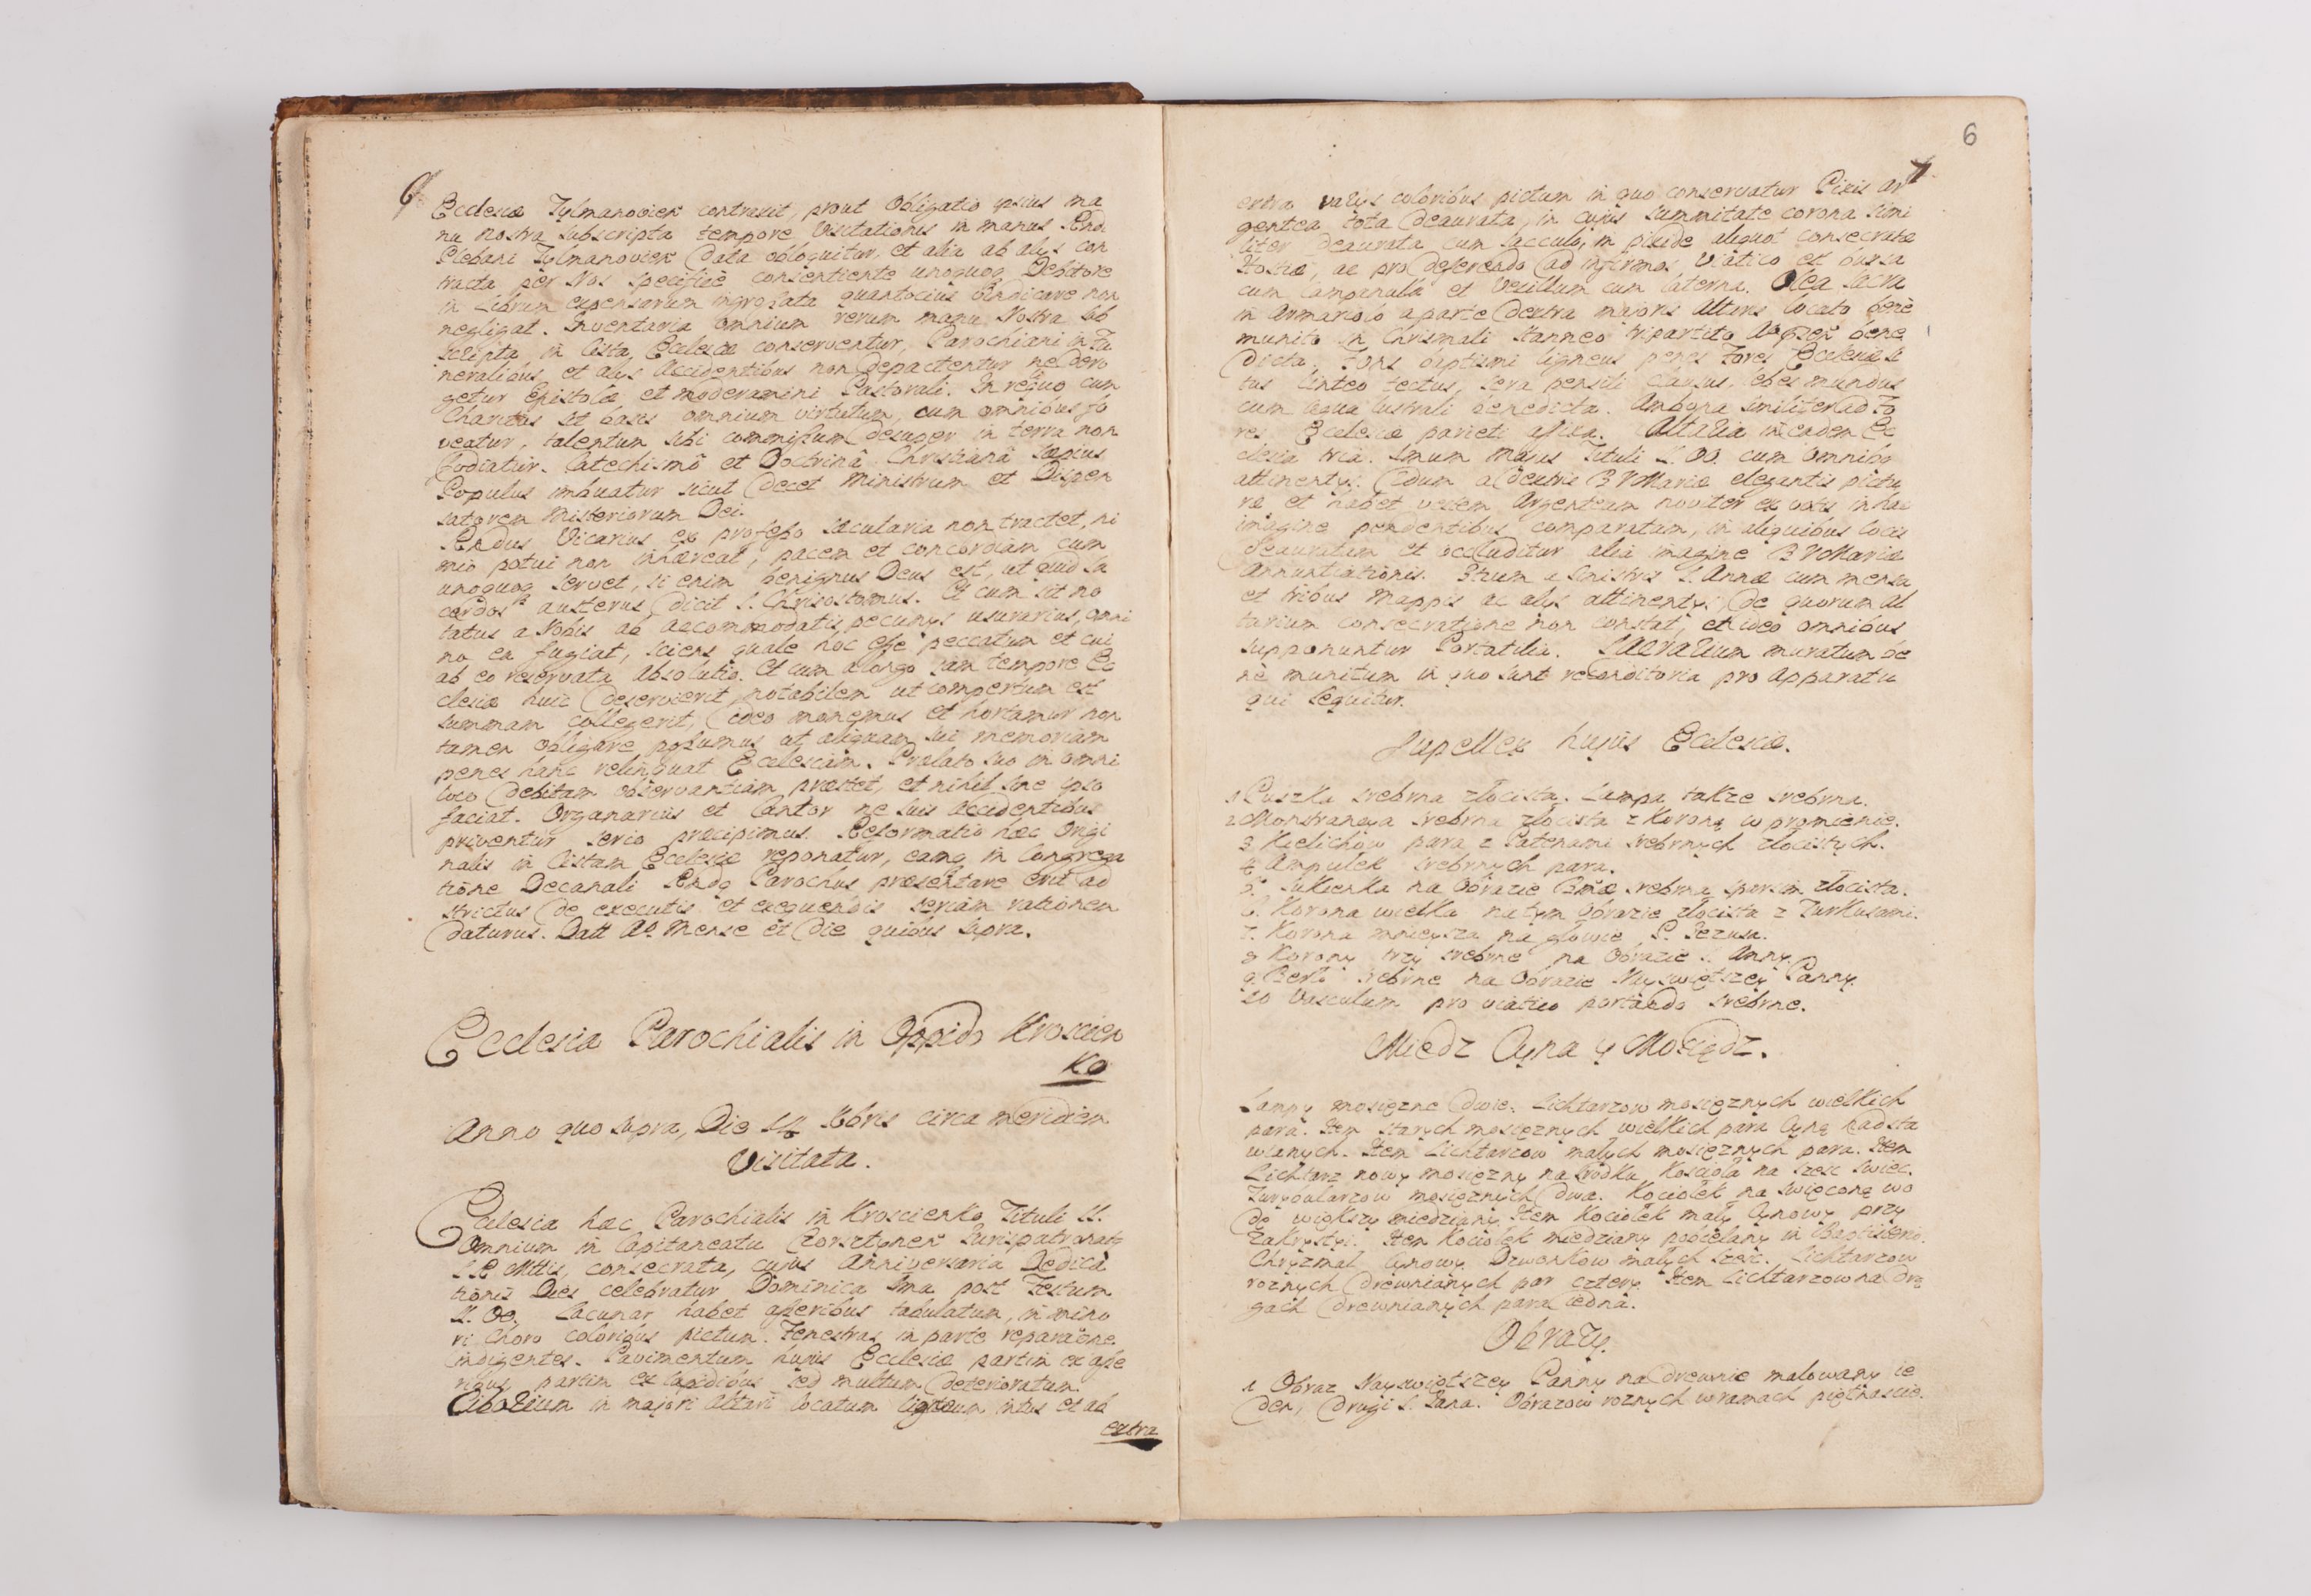 6
Ecclesiæ Tylmanovien contraxit, prout Obligatio ipsius ma
nu nostra subscripta tempore Visitationis in manus Rndi
Plebani Tylmanovien Data obloquitur, et alia ab alys con
tracta per Nos specifice consentiente unoquoq Debitore
in Librum expensarum ingrossata quantocius vindicare non
negligat. Inventaria omnium rerum manu Nostra sub
scripta in Cista Ecclesiæ conserventur, Parochiani in Fu
neralibus et alys Accidentibus non depactentur ne dero
getur Epistolæ et moderamini Pastorali. In reliquo cum
Charitas sit basis omnium virtutum, cum omnibus fo
veatur, talentum sibi commissum desuper in terra non
fodiatur. Catechismô et Doctrinâ Christianâ sæpius
Populus imbuatur sicut decet Ministrum et Dispen
satorem Misteriorum Dei.
Rndus Vicarius ex professo sæcularia non tractet, ni
mio potui non inhæreat, pacem et concordiam cum
unoquoq servet, si enim benignus Deus est, ut quid Sa
cerdos austerus dicit S. Chrisostomus. Et cum sit no
tatus a Nobis ab accommodatis pecunys usurarius, omni
no ea fugiat, sciens quale hoc esse peccatum et cui
ab eo reservata Absolutio. Et cum a longo iam tempore Ec
clesiæ huic deservierit notabilem ut compertum est
summam collegerit, ideo monemus et hortamur non
tamen obligare possumus ut aliquam sui memoriam
penes hanc relinquat Ecclesiam. Prælato suo in omni
loco debitam observantiam præstet, et nihil sine ipso
faciat. Organarius et Cantor ne suis accidentibus
priventur serio præcipimus. Reformatio hæc Origi
nalis in Cistam Ecclesiæ reponatur, eamq in Congrega
tione Decanali Rndq Parochus præsentare erit ad
strictus de executis et exequendis seriam rationem
daturus. Datt Ao. Mense et Die quibus supra.
Ecclesia Parochialis in Oppido Kroscien
ko
Anno quo supra, Die 14 Xbris circa meridiem
Visitata.
Ecclesia hæc Parochialis in Kroscienko Tituli SS.
Omnium in Capitaneatu Czorsztynen Iurispatronatus
S R Mttis, consecrata, cujus Anniversaria Dedica
tionis Dies celebratur Dominica 1ma post Festum
SS. OO. Lacunar habet asseribus tabulatum, in mino
ri Choro coloribus pictum. Fenestras in parte reparaone
indigentes. Pavimentum hujus Ecclesiæ partim ex asse
ribus partim ex lapidibus sed multum deterioratum.
Ciborium in majori Altari locatum ligneum intus et ab
extra
6
7.
extra varys coloribus pictum in quo conservatur Pixis ar
gentea tota deaurata, in cujus summitate corona simi
liter deaurata cum sacculo, in pixide aliquot consecratæ
Hostiæ, ac pro deferendo ad infirmos Viatico est bursa
cum Campanulla et Vexillum cum laterna. Olea Sacra
in Armariolo a parte dextra majoris Altaris locato bene
munito in Chrismali stanneo tripartito bene
dicta. Fons baptismi ligneus penes Fores Ecclesiæ si
tus linteo tectus, sera pensili clausus, lebes mundus
cum aqua lustrali benedicta. Ambona similiter ad Fo
res Ecclesiæ parieti affixa. Altaria in eadem Ec
clesia tria. 1mum Majus Tituli S. OO. cum omnibus
attinentys. 2dum a dextris B V Mariæ elegantis pictu
ræ et habet vestem Argenteam noviter ex votis in hac
imagine pendentibus comparatam, in aliquibus locis
deauratam et occluditur alia imagine B V Mariæ
Annuntiationis. 3tium a sinistris S. Annæ cum mensa
et tribus Mappis ac alys attinentys, de quorum Al
tarium consecratione non constat, et ideo omnibus
supponuntur Portatilia. Sacrarium muratum be
nè munitum in quo sunt reconditoria pro Apparatu
qui sequitur.
Supellex hujus Ecclesiæ.
1 Puszka srebrna złocista. Lampa takze srebrna.
2 Monstrancya srebrna złocista z Koroną w promienie.
3 Kielichow para z Patenami srebrnych złocistych.
4 Ampułek srebrnych para.
5. Sukienka na Obrazie srebrna sparsim złocista.
6. Korona wielka na tym Obrazie złocista z Turkusami.
7. Korona mnieysza na głowie P. Jezusa.
8 Korony trzy srebrne na Obrazie S. Anny.
9 Berło srebrne na Obrazie Nayswiętszey Panny
10 Vasculum pro viatico portando srebrne.
Miedz Cyna y Mosiądz.
Lampy mosięzne dwie. Lichtarzow mosięznych wielkich
para. Item starych mosięznych wielkich para Cyną nadsta
wianych. Item Lichtarzow małych mosięznych para. Item
Lichtarz nowy mosięzny na srodku Koscioła na szesc swiec.
Turybularzow mosięznych dwa. Kociołek na swięconą wo
dę większy miedziany. Item Kociołek mały Cynowy przy
Zakrystyi. Item Kociołek miedziany pobielany in Baptisterio.
Chryzmal Cynowy. Dzwonkow małych szesc. Lichtarzow
roznych drewnianych par cztery. Item Lichtarzow na drą
gach drewnianych para iedna.
Obrazy.
1 Obraz Nayswiętszey Panny na drewnie malowany ie
den, drugi S. Jana. Obrazow roznych w ramach piętnascie.